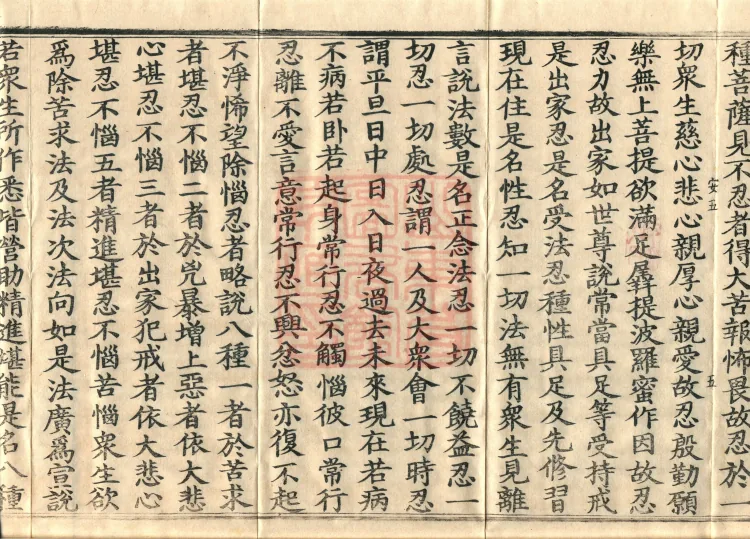 種菩薩見不忍者得大苦報怖畏故忍於一
切衆生慈心悲心親厚心親愛故忍殷勤願
樂無上菩提欲滿足羼提波羅蜜作因故忍
忍力故出家如世尊說常當具足等受持戒
是出家忍是名受法忍種性具足及先修習
現在住是名性忍知一切法無有衆生見離
言說法數是名正念法忍一切不饒益忍一
切忍一切處忍謂一人及大衆會一切時忍
謂平旦日中日入日夜過去未來現在若病
不病若卧若起身常行忍不觸惱彼口常行
忍離不愛言意常行忍不興忿怒亦復不起
不淨悕望除惱忍者略說八種一者於苦求
者堪忍不惱二者於兇暴增上惡者依大悲
心堪忍不惱三者於出家犯戒者依大悲心
堪忍不惱五者精進堪忍不惱苦惱衆生欲
爲除苦求法及法次法向如是法廣爲宣說
若衆生所作悉皆營助精進堪能是名八種
安五
五